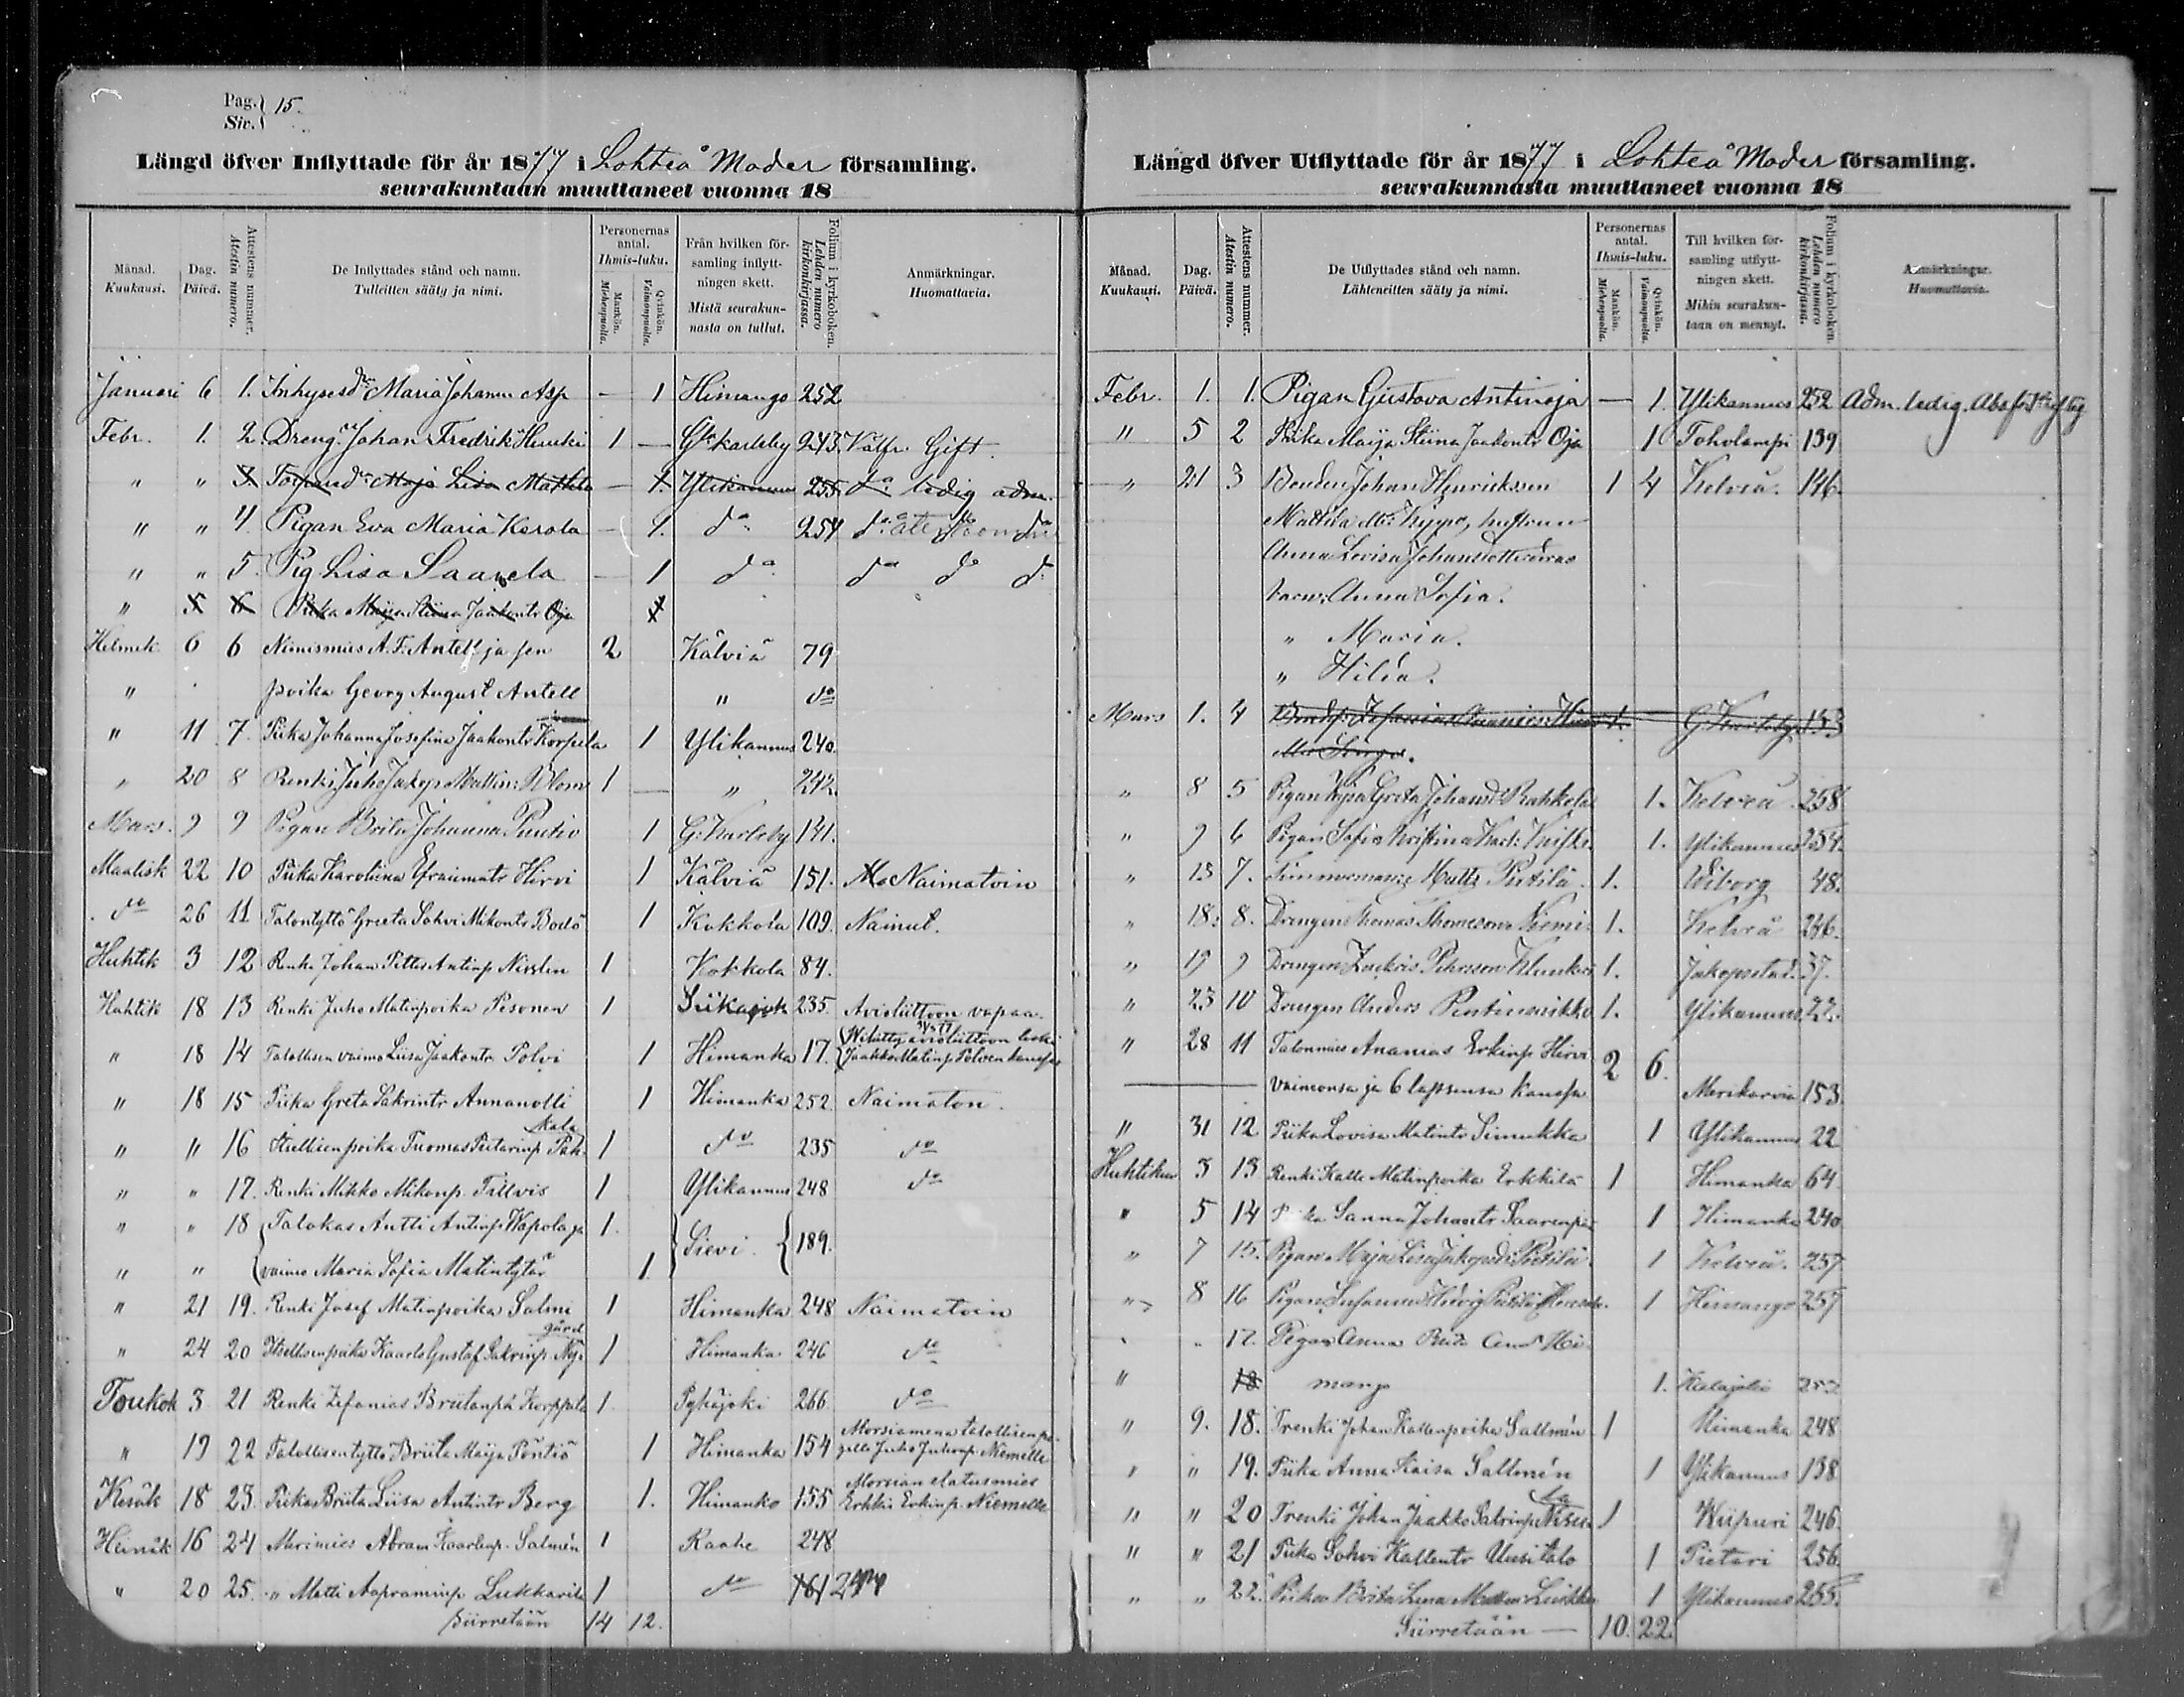 Pag. 15.
Siv.
Längd öfver Inflyttade för år 1877 i Lohteå Moder församling.
seurakuntaan muuttaneet vuonna 18
Månad. Kuukausi.
Dag. Päivä.
Attestens nummer. Atestin numero.
De Inflyttades stånd och namn. Tulleitten sääty ja nimi.
Personernas antal. Ihmis-luku.
Mankön. Miehenpuolta.
Qvinkön. Vaimonpuolta.
Från hvilken församling inflyttningen skett. Mistä seurakunnasta on tullut.
Folium i kyrkoboken. Lehden numero kirkonkirjassa.
Anmärkningar. Huomattavia.
Januari 6 1. Inhysesdr Maria Johanna Asp — 1 Himango 252
Febr. 1. 2. Dreng. Johan Fredrik Huuki 1 — Gkarleby 243. Välfr. Gift.
" " 3 Maja Lisa Mattila — 1. Ylikannus 255 do ledig adm.
" " 4. Pigan Eva Maria Kerola — 1. do 254
" " 5. Pig Lisa Saarela — 1 do do do do
" 5 6 Piika Maija Stiina Jaakontr Oja 1
Helmik 6 6 Nimismies A. F. Antell ja sen 2 Kälviä 79
" poika Georg August Antell " do
" 11 7. Piika Johanna Josefina Jaakontr Korpela 1 Ylikannus 240.
" 20 8 Renki Juho Jakop Mattinp: Blom 1 — " 242.
Mars. 9 9 Pigan Brita Johanna Puutio 1 G: Karleby 141.
Maalisk 22 10 Piika Karoliina Efraimintr Hirvi 1 Kälviä 151. Naimatoin
do 26 11 Talontyttö Greeta Sohvi Mikontr Bodö 1 Kokkola 109. Naimat.
Huhtik 3 12 Renki Johan Petter Antinp Nisslin 1 Kokkola 84.
Huhtik 18 13 Renki Juho Matinpoika Pesonen 1 Siikajok 235. Avioliittoon vapaa.
" 18 14 Talollisen vaimo Liisa Jaakontr Polvi 1 Himanka 17. Wihitty avioliittoon leski Jaakko Matinp Polven kanssa
" 18 15 Piika Greta Sakrintr Annanolli 1 Himanka 252. Naimaton.
" " 16 Itsellisenpoika Tuomas Pietarinp Pahkala 1 do 235 do
" " 17. Renki Mikko Mikonp. Tillvis 1 Ylikannus 248 do
" " 18 Talokas Antti Antinp. Wapola ja 1. Sievi. 189.
" " vaimo Maria Sofia Matintytär 1
" 21 19. Renki Josef Matinpoika Salmi 1 Himanka 248 Naimatoin
" 24 20 Itsellisenpoika Kaarlo Gustaf Sakrinp. Nygård 1 Himanka 246 do
Toukok 3 21 Renki Zefanias Briitanpka Korppila 1 Pyhäjoki 266 do
" 19 22 Talollisentyttö Briita Maija Pöntiö 1 Himanka 154 Morsiamena talollisenpojalle Juho Juhonp. Niemelle
Kesäk 18 23. Piika Briita Liisa Antintr Berg 1. Himanko 155 Morsian Erkki Erkinp. Niemelle
Heinäk 16 24 Merimies Abram Kaarlenp. Salmén 1 Raahe 248
" 20 25. " Matti Aapraminp Lukkarila 1 do
Siirretään 14 12.
Längd öfver Utflyttade för år 1877 i Lohteå Moder församling.
seurakunnasta muuttaneet vuonna 18
Månad. Kuukausi.
Dag. Päivä.
Attestens nummer. Atestin numero.
De Utflyttades stånd och namn. Lähteneitten sääty ja nimi.
Personernas antal. Ihmis-luku.
Mankön. Miehenpuolta.
Qvinkön. Vaimonpuolta.
Till hvilken församling utflyttningen skett. Mihin seurakuntaan on mennyt.
Folium i kyrkoboken. Lehden numero kirkonkirjassa.
Anmärkningar. Huomattavia.
Febr. 1. 1. Pigan Gustava Antinoja — 1. Ylikannus 252 Adm. ledig.
" 5 2 Piika Maija Stiina Jaakontr Oja 1 Toholampi 139
" 21 3 Bonden Johan Henriksson 1 4 Kelviå. 146.
Mattila hustrun
Anna Lovisa Johansdotter
barn: Anna Sofia.
" Maria.
" Hilja.
Mars 1. 4 1. G. Karleby 153
" 8 5 Pigan Kajsa Greta Johansdr Rahkola 1. Kelviå 258
" 9 6 Pigan Sofia Kristina 1. Ylikannus 254.
" 13 7. Timmerman Matts Pietilä. 1. Wiborg 48.
" 18. 8. Drengen Thomas Thomasson Niemi 1. Kelviå 246.
" 19 9 Drengen Zackris Pehrsson Klemkki 1. Jakopstad. 37.
" 23 10 Drengen Anders Pentinmikko 1. Ylikannus 22.
" 28 11 Talonmies Ananias Erkinp Hirvi 2 6.
vaimonsa ja 6 lapsensa kanssa Merikarvia 153.
" 31 12 Piika Lovisa Matintr Simukka 1 Ylikannus 22
Huhtikuu 3 13 Renki Kalle Matinpoika Erkkilä 1 Himanka 64.
" 5 14 Piika Sanna Johantr Saarenpää 1 Himanka 240
" 7 15. Pigan Maja Lisa Jakopsdr Pietilä 1 Kelviå. 257
" 8 16 Pigan Susanna Hedvig 1 Himango 257
" " 17. Pigan Anna Brita Andr Hi-
" 18 mango 1. Kalajoki 252
" 9. 18. Trenki Johan Kallenpoika Sallmén 1 Himanka 248
" " 19. Piika Anna Kaisa Sallmén 1 Ylikannus 138
" " 20 Trenki Johan Jaakko Sakrinp 1 Wiipuri 246.
" " 21 Piika Sohvi Kallentr Uusitalo 1 Pietari 256.
" " 22. Piika Brita Lena 1 Ylikannus 255.
Siirretään — 10. 22.